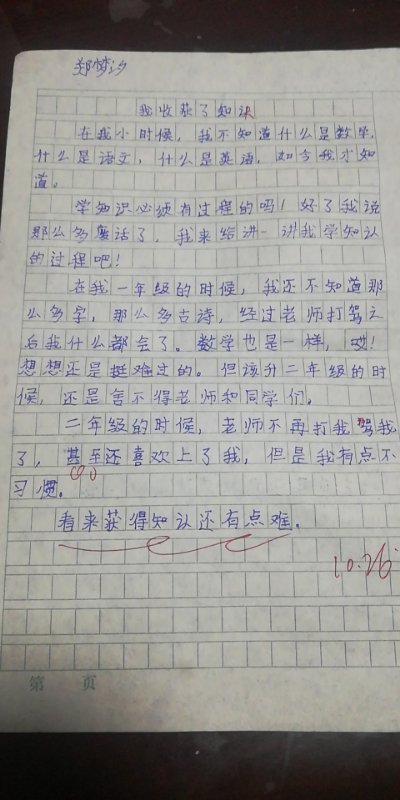 郑梦汐
我收获了知识
在我小时候，我不知道什么是数学，
什么是语文，什么是英语，如今我才知
道。
学知识必须有过程的吗！好了我说
那么多废话了，我来给讲一讲我学知认
的过程吧！
在我一年级的时候，我还不知道那
么多字，那么多古诗，经过老师打骂之
后我什么都会了。数学也是一样，哎！
想想还是挺难过的。但该升二年级的时
候，还是舍不得老师和同学们。
二年级的时候，老师不再打我骂我
了，甚至还喜欢上了我，但是我有点不
习惯。
看来获得知认还有点难。
10.26
第 页